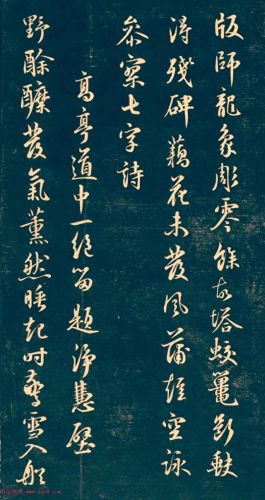 版師龍象彫零餘故塔蛟鼉軼
得殘碑藕花未發風蒲雄空詠
參寥七字詩
高亭道中一絕留題淨慧壁
野酴醾發氣薰然睡起時驚雪入船